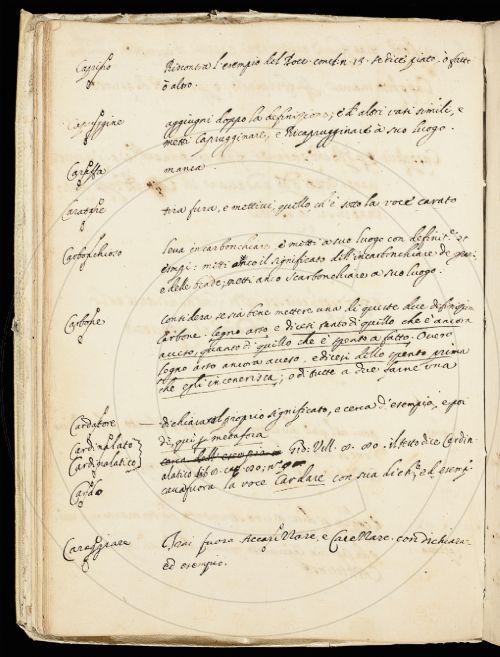 Caprifio Riscontra l'esempio del Bocc. conch. n. 15. se dice fiato. ò fatto
ò altro.
Capruggine aggiugni doppo la definizione; è d'altri vasi simili, e
metti Capruggginare, e Ricapruggginare à suo luogo.
manca.
Caratare tira fura, e mettivi, quello, ch'è sotto la voce carato
Carbonchioso leva incarbonchiare, e metti a suo luogo con definit.e et
esempi: metti anco il significato dell'incarbonchiare de grani,
e delle biade, metti anco scarbonchiare a suo luogo.
Carbone considera se sia bene mettere una di queste due definizioni
Carbone. legno arso e dicesi tanto di quello che è ancora
acceso, quanto di quello che è spento a fatto. Overo
legno arso ancora acceso, e dicesi dello spento prima
che egli incenerisca; o di tutte a due farne una
Cardatore dichiara il proprio significato, e cerca d'esempio, e poi
Cardinalato di, qui p metafora
Cardinalatico Gio: Vill. il testo dice Cardin-
alatico
Cardo cava fuora la voce Cardare con sua dich.e, ed esempi
Careggiare Trai fuora e con dichiara.
ed esempio.